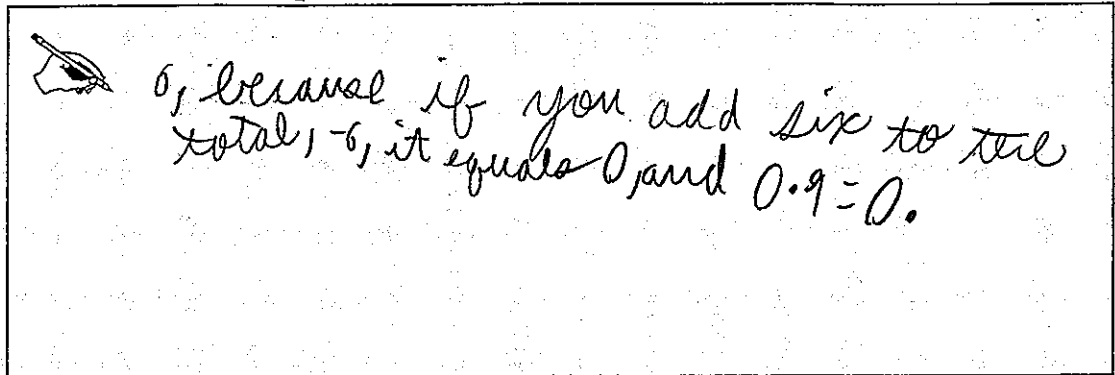 6, because if you add six to the
total, -6, it equals 0, and 0·9=0.